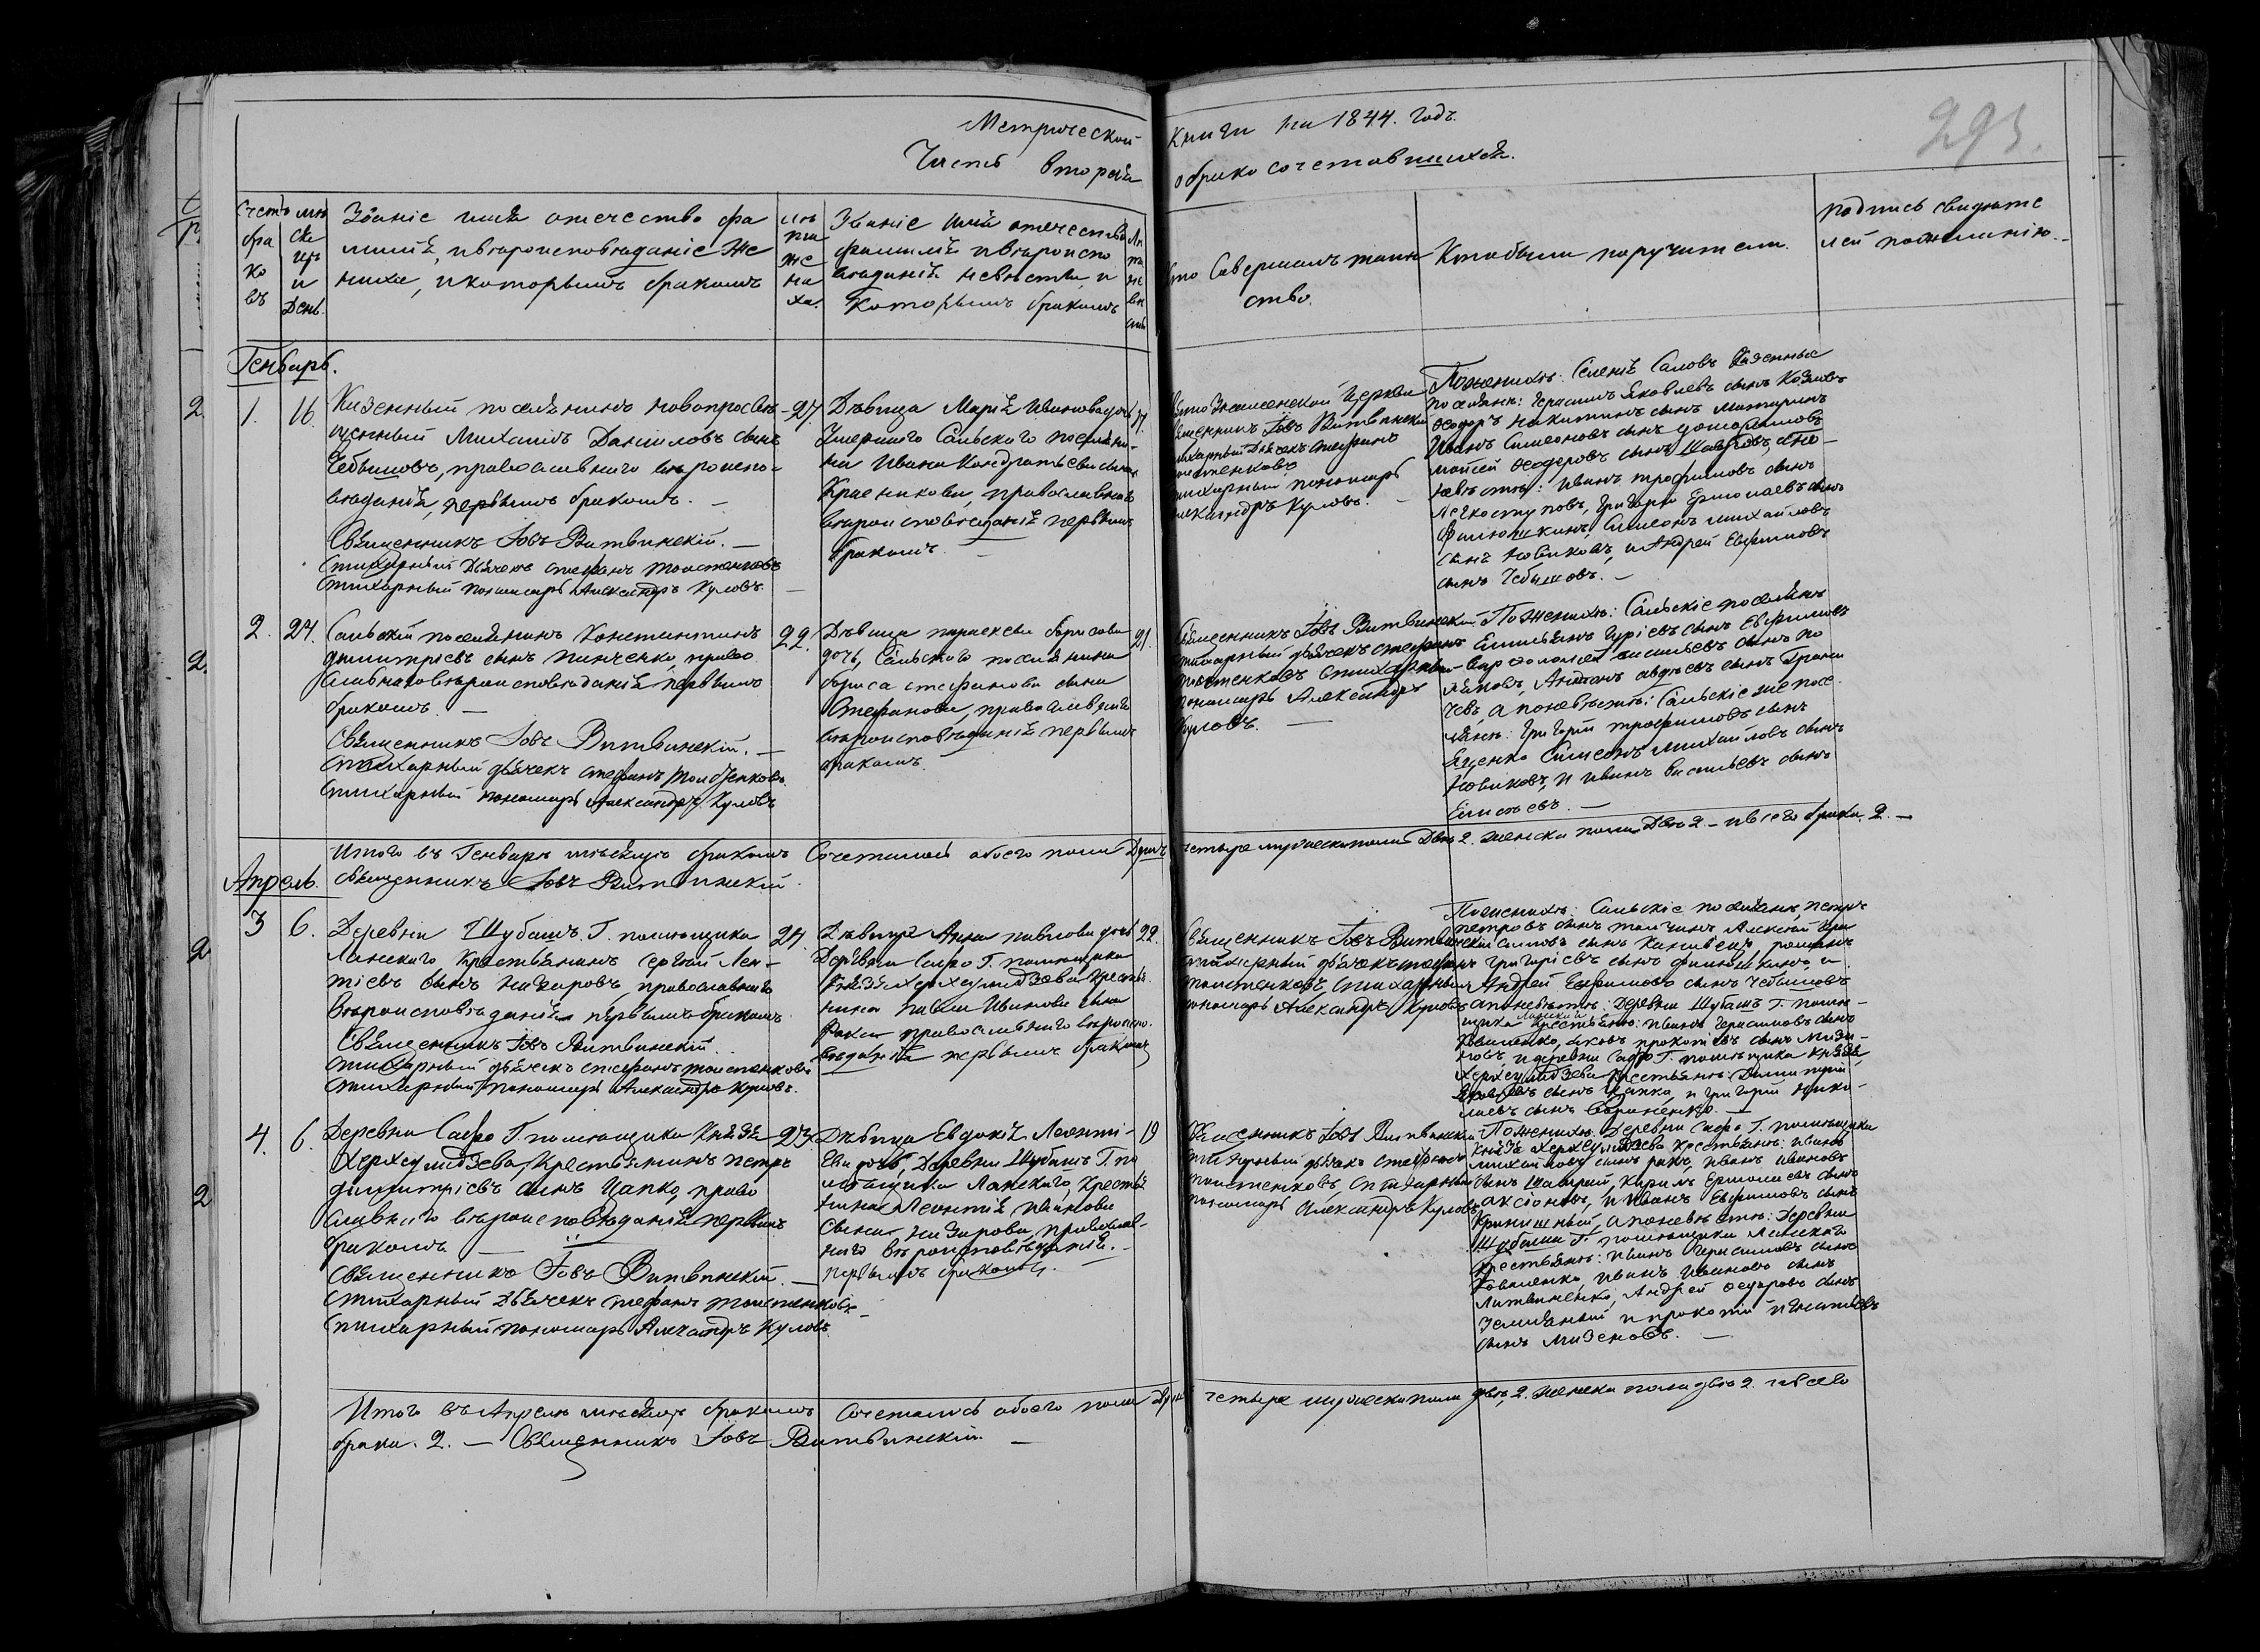 Метрической книги на 1844. годъ.
Часть вторая о бракосочетавшихся.
293.
Счетъ браковъ
Мѣсяцъ и День.
Званіе имя отечество фа
милія, и вѣроисповѣданіе Же
ниха, и которымъ бракомъ
Лѣта жениха.
Званіе имя отечество
фамилія и вѣроиспо
вѣданія невѣсты, и
которымъ бракомъ
Лѣта невѣсты
Кто Совершалъ таин
ство.
Кто были поручители.
подпись свидѣте
лей по желанію.
Генварь.
1. 16.
Казенный поселянинъ новопросвѣ-
щенный Михаилъ Даниловъ сынъ
Чебышовъ, православнаго вѣроиспо-
вѣданія, первымъ бракомъ.
Священникъ Іовъ Витвинскій.
стихарный Дьячекъ Стефанъ Толстенковъ
стихарный пономарь Александръ Куловъ.
27.
Дѣвица Марія Иванова дочь
Умершаго Сальскаго поселяни-
на Ивана Кондратьева сына
Красникова, православнаго
вѣроисповѣданія первымъ
бракомъ.
17.
Знаменской Церкви
Священникъ Іовъ Витвинскій
стихарный Дьячекъ Стефанъ
Толстенковъ
стихарный пономарь
Александръ Куловъ.
По женихѣ: Селенія Саловъ Казенные
поселяне: Герасимъ Яковлевъ сынъ Козловъ
Феодоръ Никитинъ сынъ
Иванъ Симеоновъ сынъ
Моисей Феодоровъ сынъ Шавровъ, а по
невѣстѣ: Иванъ трофимовъ сынъ
Легкоступовъ, Григорій Ермолаевъ сынъ
Филюшкинъ, Симеонъ михайловъ
сынъ Новиковъ, и Андрей Евфимовъ
сынъ Чебышовъ.
2. 24.
Сальскій поселянинъ Константинъ
Димитріевъ сынъ пинченко, право
славнаго вѣроисповѣданія первымъ
бракомъ.
Священникъ Іовъ Витвинскій.
стихарный дьячекъ стефанъ Толстенковъ.
стихарный пономарь Александръ Куловъ
22.
Дѣвица параскева борисова
дочь, Сальскаго поселянина
бориса стефанова сына
Стефанова, православнаго
вѣроисповѣданія первымъ
бракомъ.
21.
Священникъ Іовъ Витвинскій
стихарный дьячекъ стефанъ
толстенковъ стихарный
пономарь Александръ
Куловъ.
По женихѣ: Сальскіе поселяне
Емильянъ Гуріевъ сынъ Евфимовъ
Варфоломей васильевъ сынъ по
ляковъ, Антонъ авдѣевъ сынъ Грани
чевъ, а по невѣстѣ: Сальскіе же посе
ляне: Григорій трофимовъ сынъ
Яценко Симеонъ михайловъ сынъ
Новиковъ, и иванъ васильевъ сынъ
Елисѣевъ.
Итого въ Генварѣ мѣсяцѣ бракомъ Сочеталось обоего пола Душъ четыре мужеска пола Двѣ 2. женска пола Двѣ 2. и всего брака. 2.
Священникъ Іовъ Витвинскій.
Апрель.
3 6.
Деревни Шубашъ Г. помѣщика
Ланскаго Крестьянинъ Сергѣй Леон-
тіевъ сынъ Назаровъ, православнаго
вѣроисповѣданія первымъ бракомъ.
Священникъ Іовъ Витвинскій.
стихарный дьячекъ стефанъ толстенковъ
стихарный пономарь Александръ Куловъ.
24.
Дѣвица Анна павлова дочь
Деревни Сафо Г. помѣщика
Князя Херхеулидзева Крестья
нина павла Иванова сына
православнаго вѣроиспо-
вѣданія первымъ бракомъ
22.
Священникъ Іовъ Витвинскій
стихарный дьячекъ стефанъ
толстенковъ, стихарный
пономарь Александръ Куловъ
По женихѣ: Сальскіе поселяне, петръ
петровъ сынъ Алексей
сынъ романъ
Григоріевъ сынъ Филюшкинъ, и
Андрей Евфимовъ сынъ Чебышовъ
а по невѣстѣ: Деревни Шубашъ Г. помѣ-
щика Ланскаго Крестьяне: Иванъ Герасимовъ сынъ
Коваленко, яковъ прокопіевъ сынъ Мизи-
новъ, и деревни Сафо Г. помѣщика князя
Херхеулидзева Крестьяне: Димитрій
Яковлевъ сынъ Цапко, и Григорій нико-
лаевъ сынъ
4. 6.
Деревни Сафо Г. помѣщика Князя
Херхеулидзева, Крестьянинъ петръ
Димитріевъ сынъ Цапко, право
славнаго вѣроисповѣданія первымъ
бракомъ
Священникъ Іовъ Витвинскій.
стихарный Дьячекъ стефанъ толстенковъ
стихарный пономарь Александръ Куловъ.
23.
Дѣвица Евдокія Леонті-
ева дочь, Деревни Шубашъ Г. по
мѣщика Ланскаго, Крестья
нина Леонтія иванова
сына Назарова, православ-
наго вѣроисповѣданія.
первымъ бракомъ.
19
Священникъ Іовъ Витвинскій
стихарный дьячекъ стефанъ
толстенковъ, стихарный
пономарь Александръ Куловъ
По женихѣ: Деревни Сафо Г. помѣщика
Князя Херхеулидзева крестьяне: иванъ
михайловъ сынъ ракъ, иванъ ивановъ
сынъ Шаврай, Кирилъ Ермолаевъ сынъ
аксіоновъ, и иванъ Евфимовъ сынъ
а по невѣстѣ: Деревни
Шубаша Г. помѣщика Ланскаго
крестьяне: иванъ Герасимовъ сынъ
Коваленко иванъ Ивановъ сынъ
Литвиненко, Андрей Феодоровъ сынъ
и прокопій игнатьевъ
сынъ мизеновъ.
Итого въ Апрелѣ мѣсяцѣ бракомъ Сочеталось обоего пола Душъ четыре мужеска пола двѣ, 2. женска пола двѣ 2. и всего
брака. 2. — Священникъ Іовъ Витвинскій.